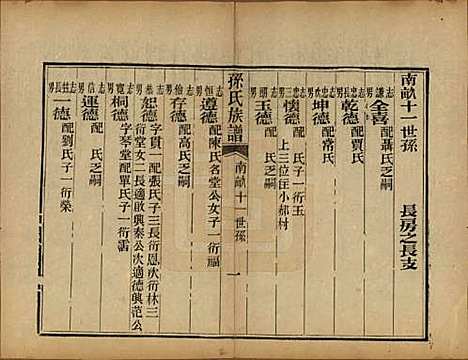 南畝十一世孫 長房之長支
志謙男 全喜 配聶氏乏嗣
志忠長男 乾德 配賈氏
志忠次男 坤德 配常氏
志忠三男 懷德 配 氏子一衍玉
上三位住小郝村
志 男 玉德 配 氏乏嗣
孫氏族譜 南畝十一世孫 一
志恒男 遵德 配陳氏名堂公女子一衍福
志 男 存德 配高氏乏嗣
志 男 恕德 字貫一配張氏子三長衍恩次衍林三
衍堂女二長適啟興秦公次適德興范公
志寬男 桐德 字琴堂配單氏子一衍雷
志信男 運德 配 氏乏嗣
志 長男 一德 配劉氏子一衍榮